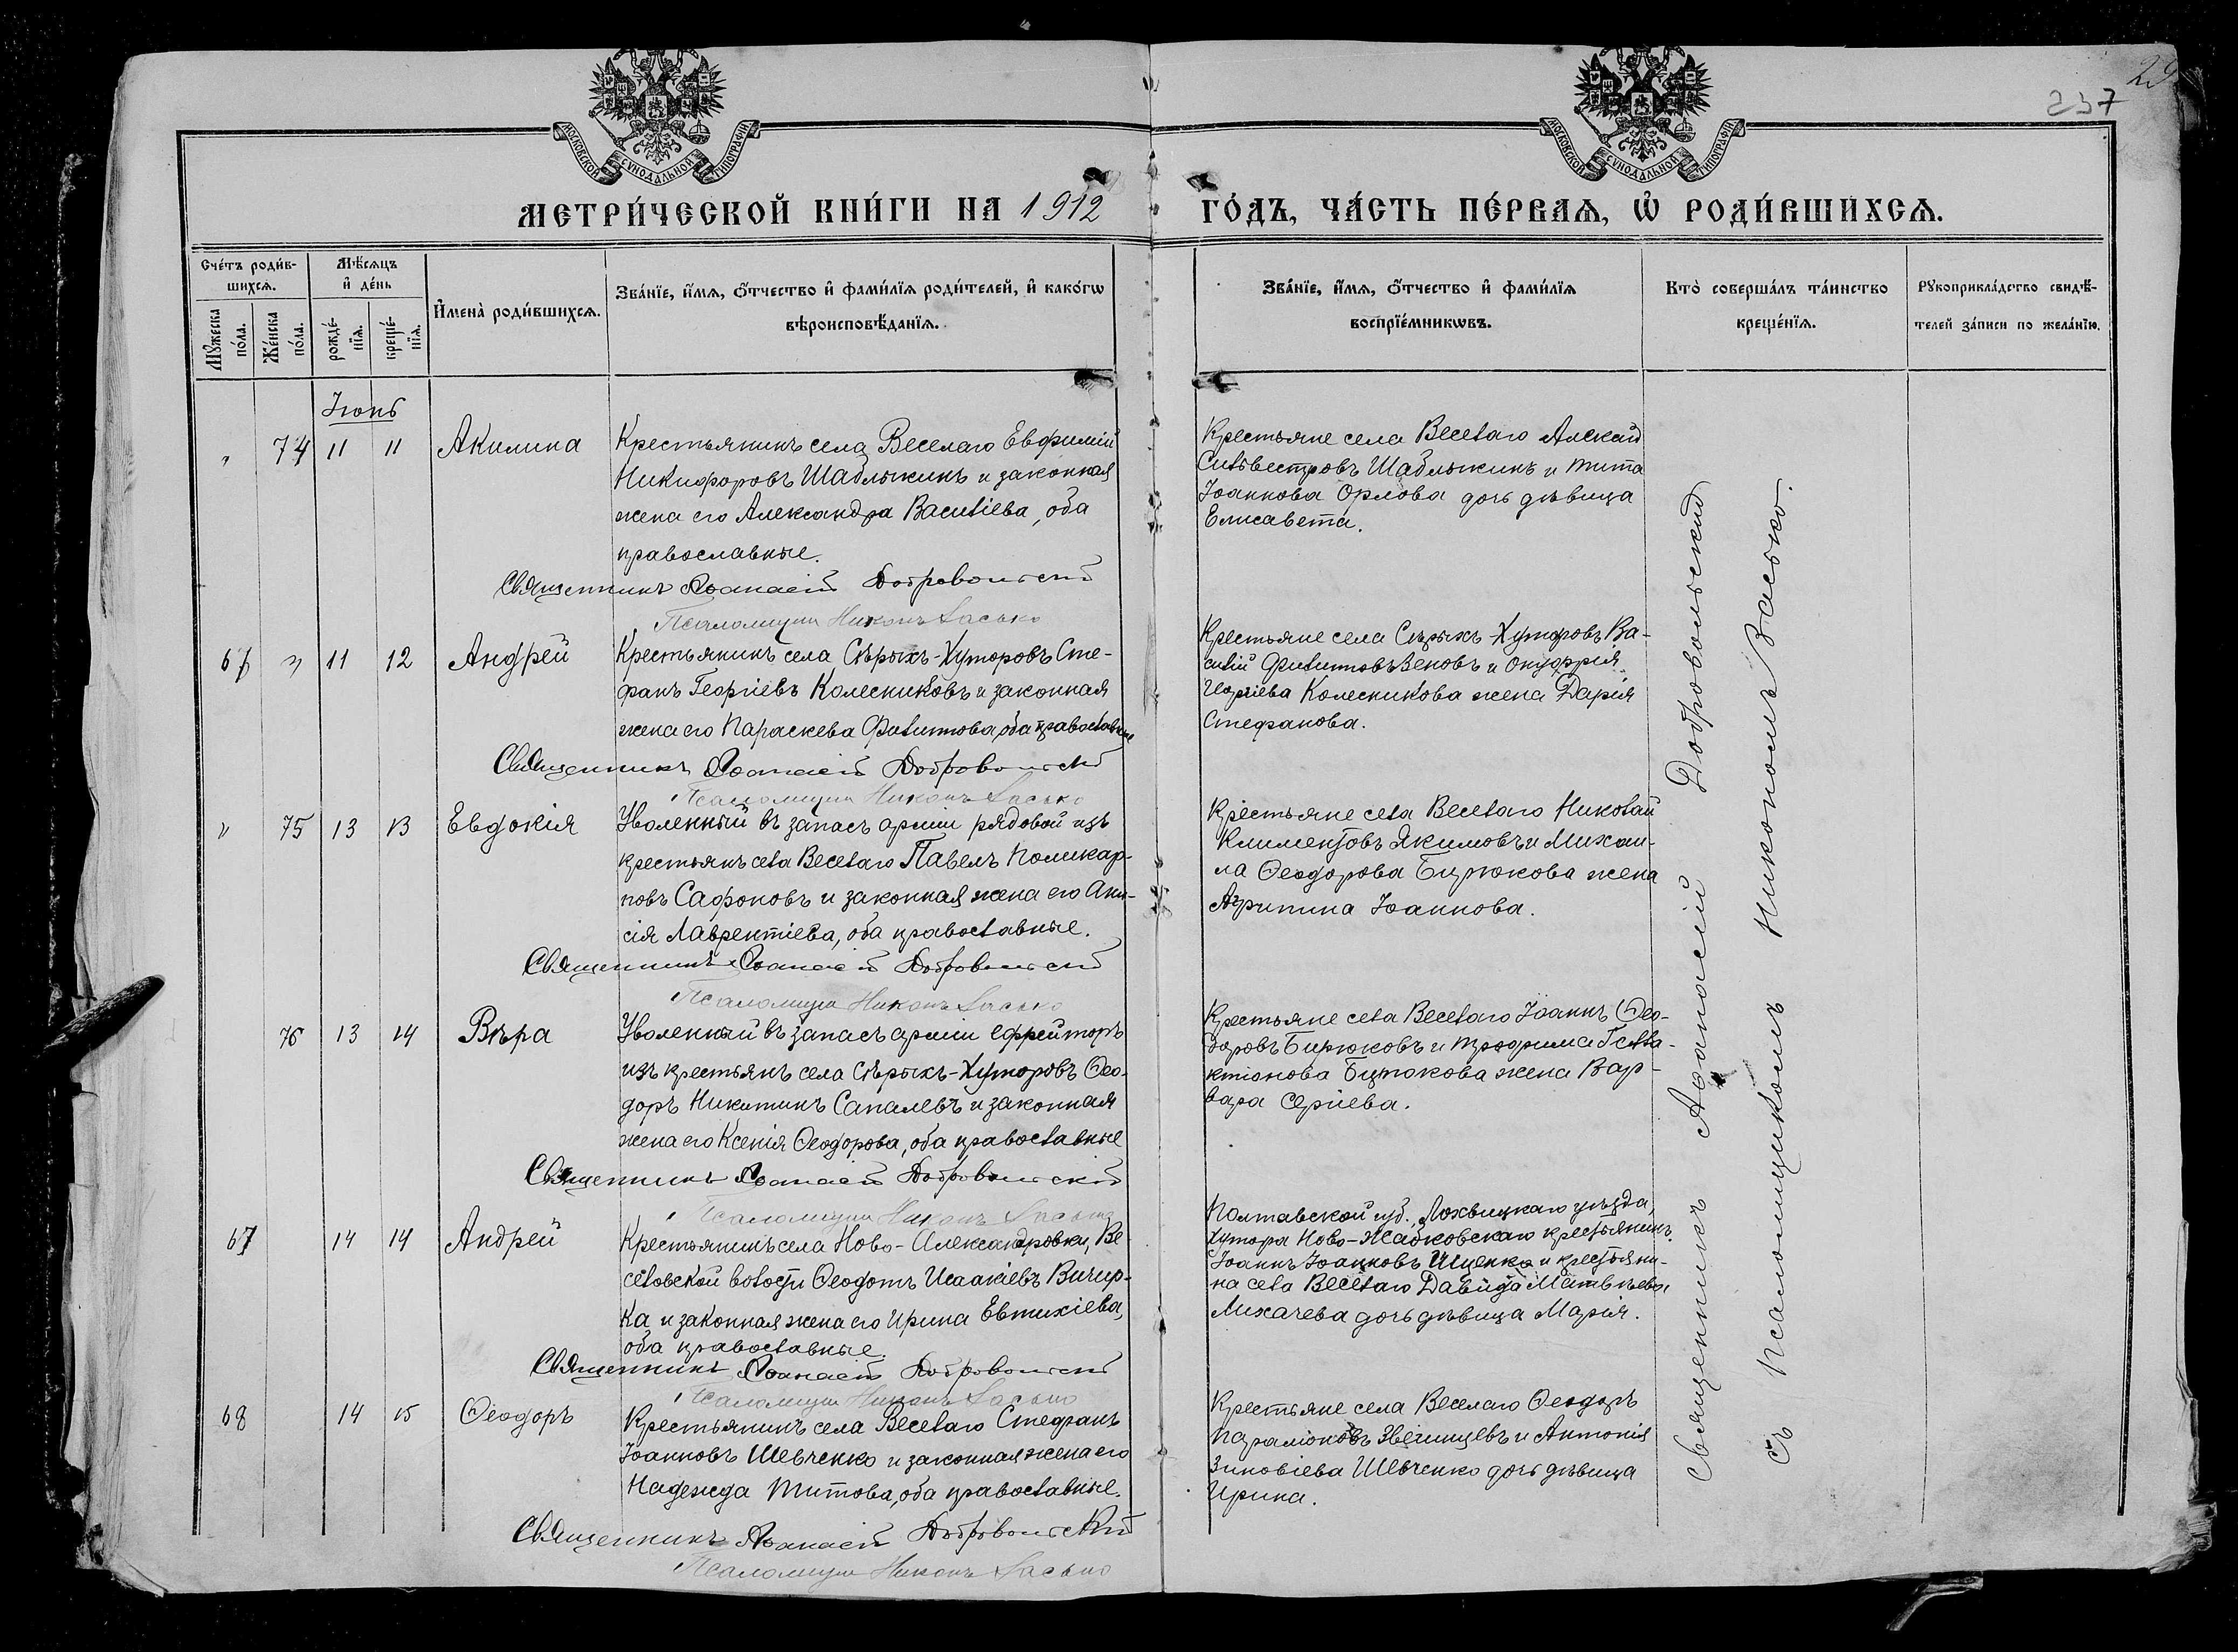 237
МОСКОВСКОЙ СУНОДАЛЬНОЙ ТИПОГРАФІИ
МОСКОВСКОЙ СУНОДАЛЬНОЙ ТИПОГРАФІИ
МЕТРИ́ЧЕСКОЙ КНИ́ГИ НА 1912 ГО́ДЪ, ЧА́СТЬ ПЕ́РВАѦ, Ѡ҆ РОДИ́ВШИХСѦ.
Сче́тъ роди́в-
шихсѧ.
Мꙋ́жеска по́ла.
Же́нска по́ла.
Мѣ́сѧцъ
и҆ де́нь
рожде́-
нїѧ.
креще́-
нїѧ.
И҆мена̀ роди́вшихсѧ.
Зва́нїе, и҆́мѧ, ѻ҆́тчество и҆ фами́лїѧ роди́телей, и҆ како́гѡ
вѣроисповѣ́данїѧ.
Зва́нїе, и҆́мѧ, ѻ҆́тчество и҆ фами́лїѧ
воспрїе́мникѡвъ.
Кто̀ соверша́лъ та́инство
креще́нїѧ.
Рꙋкоприкла́дство свидѣ́-
телей за́писи по жела́нїю.
Іюнь
" 74 11 11 Акилина
Крестьянинъ села Веселаго Евфимій
Никифоровъ Шаблыкинъ и законная
жена его Александра Василіева, оба
православные.
Священникъ Аѳанасій Добровольскій
Псаломщикъ Никонъ Васько
Крестьяне села Веселаго Алексій
Сильвестровъ Шаблыкинъ и Тита
Іоаннова Орлова дочь дѣвица
Елисавета.
67 " 11 12 Андрей
Крестьянинъ села Сѣрыхъ-Хуторовъ Сте-
фанъ Георгіевъ Колесниковъ и законная
жена его Параскева Филиппова, оба православные
Священникъ Аѳанасій Добровольскій
Псаломщикъ Никонъ Васько
Крестьяне села Сѣрыхъ-Хуторовъ Ва-
силій Филипповъ Зеновъ и Онуфрія
Георгіева Колесникова жена Дарія
Стефанова.
" 75 13 13 Евдокія
Уволенный въ запасъ арміи рядовой изъ
крестьянъ села Веселаго Павелъ Поликар-
повъ Сафоновъ и законная жена его Ани-
сія Лаврентіева, оба православные.
Священникъ Аѳанасій Добровольскій
Псаломщикъ Никонъ Васько
Крестьяне села Веселаго Николай
Климентовъ Якимовъ и Михаи-
ла Ѳеодорова Бирюкова жена
Агрипина Іоаннова.
76 13 14 Вѣра
Уволенный въ запасъ арміи ефрейторъ
изъ крестьянъ села Сѣрыхъ-Хуторовъ Ѳео-
доръ Никитинъ Сапалевъ и законная
жена его Ксенія Ѳеодорова, оба православные
Священникъ Аѳанасій Добровольскій
Псаломщикъ Никонъ Васько
Крестьяне села Веселаго Іоаннъ Ѳео-
доровъ Бирюковъ и Трофима Галла-
ктіонова Бирюкова жена Вар-
вара Сергіева.
67 14 14 Андрей
Крестьянинъ села Ново-Александровки, Ве-
селовской волости Ѳеодотъ Исаакіевъ Вичир-
ка и законная жена его Ирина Евтихіева,
оба православные.
Священникъ Аѳанасій Добровольскій
Псаломщикъ Никонъ Васько
Полтавской губ., Лохвицкаго уѣзда,
хутора Ново-Жабковскаго крестьянинъ
Іоаннъ Іоанновъ Ищенко и крестьяни-
на села Веселаго Давида Матвѣева
Лихачева дочь дѣвица Марія.
68 14 15 Ѳеодоръ
Крестьянинъ села Веселаго Стефанъ
Іоанновъ Шевченко и законная жена его
Надежда Титова, оба православные.
Священникъ Аѳанасій Добровольскій
Псаломщикъ Никонъ Васько
Крестьяне села Веселаго Ѳеодоръ
Иларіоновъ Звегинцевъ и Антонія
Зиновіева Шевченко дочь дѣвица
Ирина.
Священникъ Аѳанасій Добровольскій
съ псаломщикомъ Никономъ Васько.